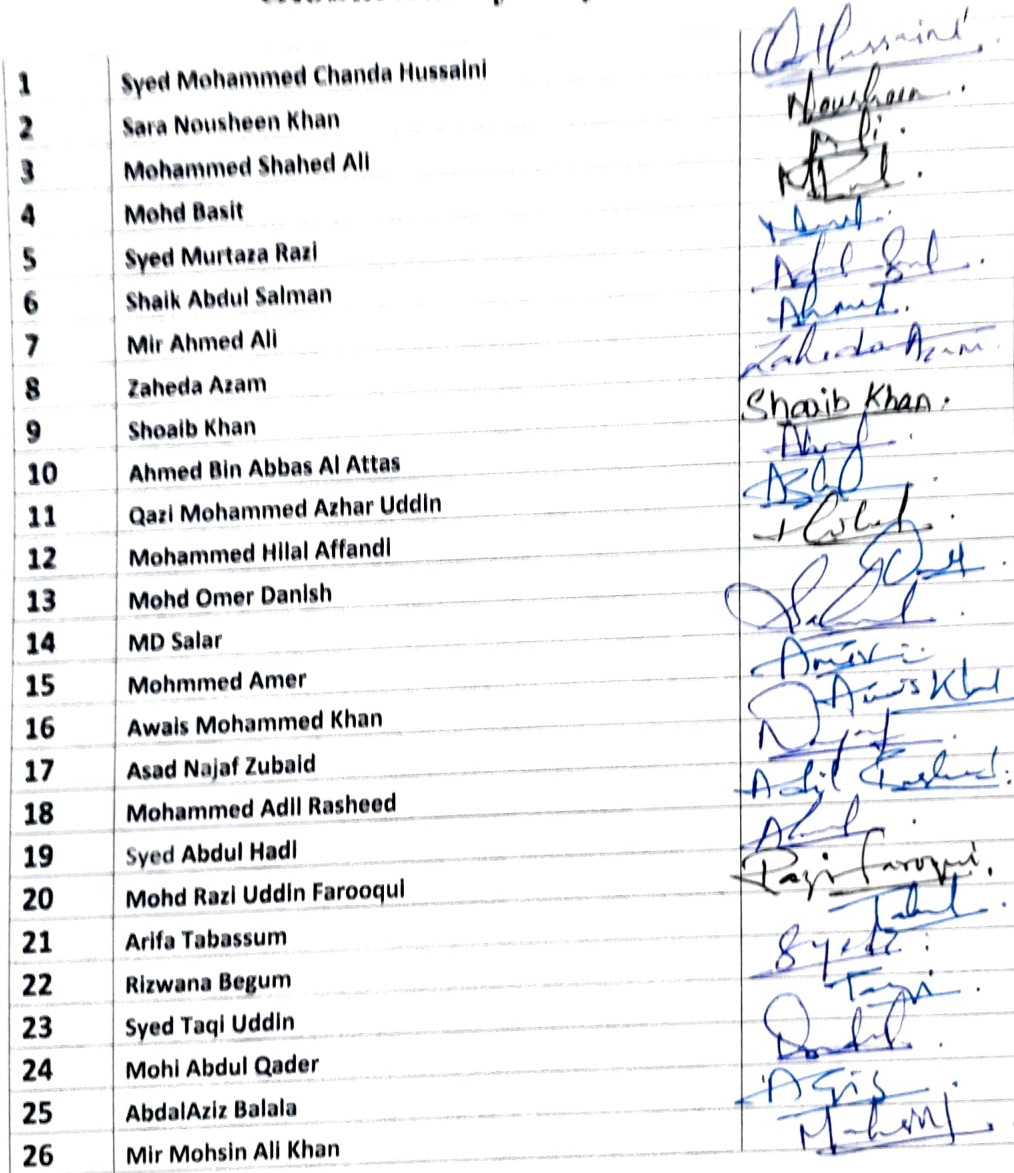 1 Syed Mohammed Chanda Hussaini Hussaini
2 Sara Nousheen Khan Nousheen
3 Mohammed Shahed Ali Ali
4 Mohd Basit
5 Syed Murtaza Razi
6 Shaik Abdul Salman
7 Mir Ahmed Ali Ahmed
8 Zaheda Azam Zaheda Azam
9 Shoaib Khan Shoaib Khan.
10 Ahmed Bin Abbas Al Attas
11 Qazi Mohammed Azhar Uddin
12 Mohammed Hilal Affandi
13 Mohd Omer Danish
14 MD Salar
15 Mohmmed Amer
16 Awais Mohammed Khan
17 Asad Najaf Zubaid
18 Mohammed Adil Rasheed Adil Rasheed
19 Syed Abdul Hadi
20 Mohd Razi Uddin Farooqui Razi Faroqui
21 Arifa Tabassum
22 Rizwana Begum
23 Syed Taqi Uddin
24 Mohi Abdul Qader
25 AbdalAziz Balala
26 Mir Mohsin Ali Khan